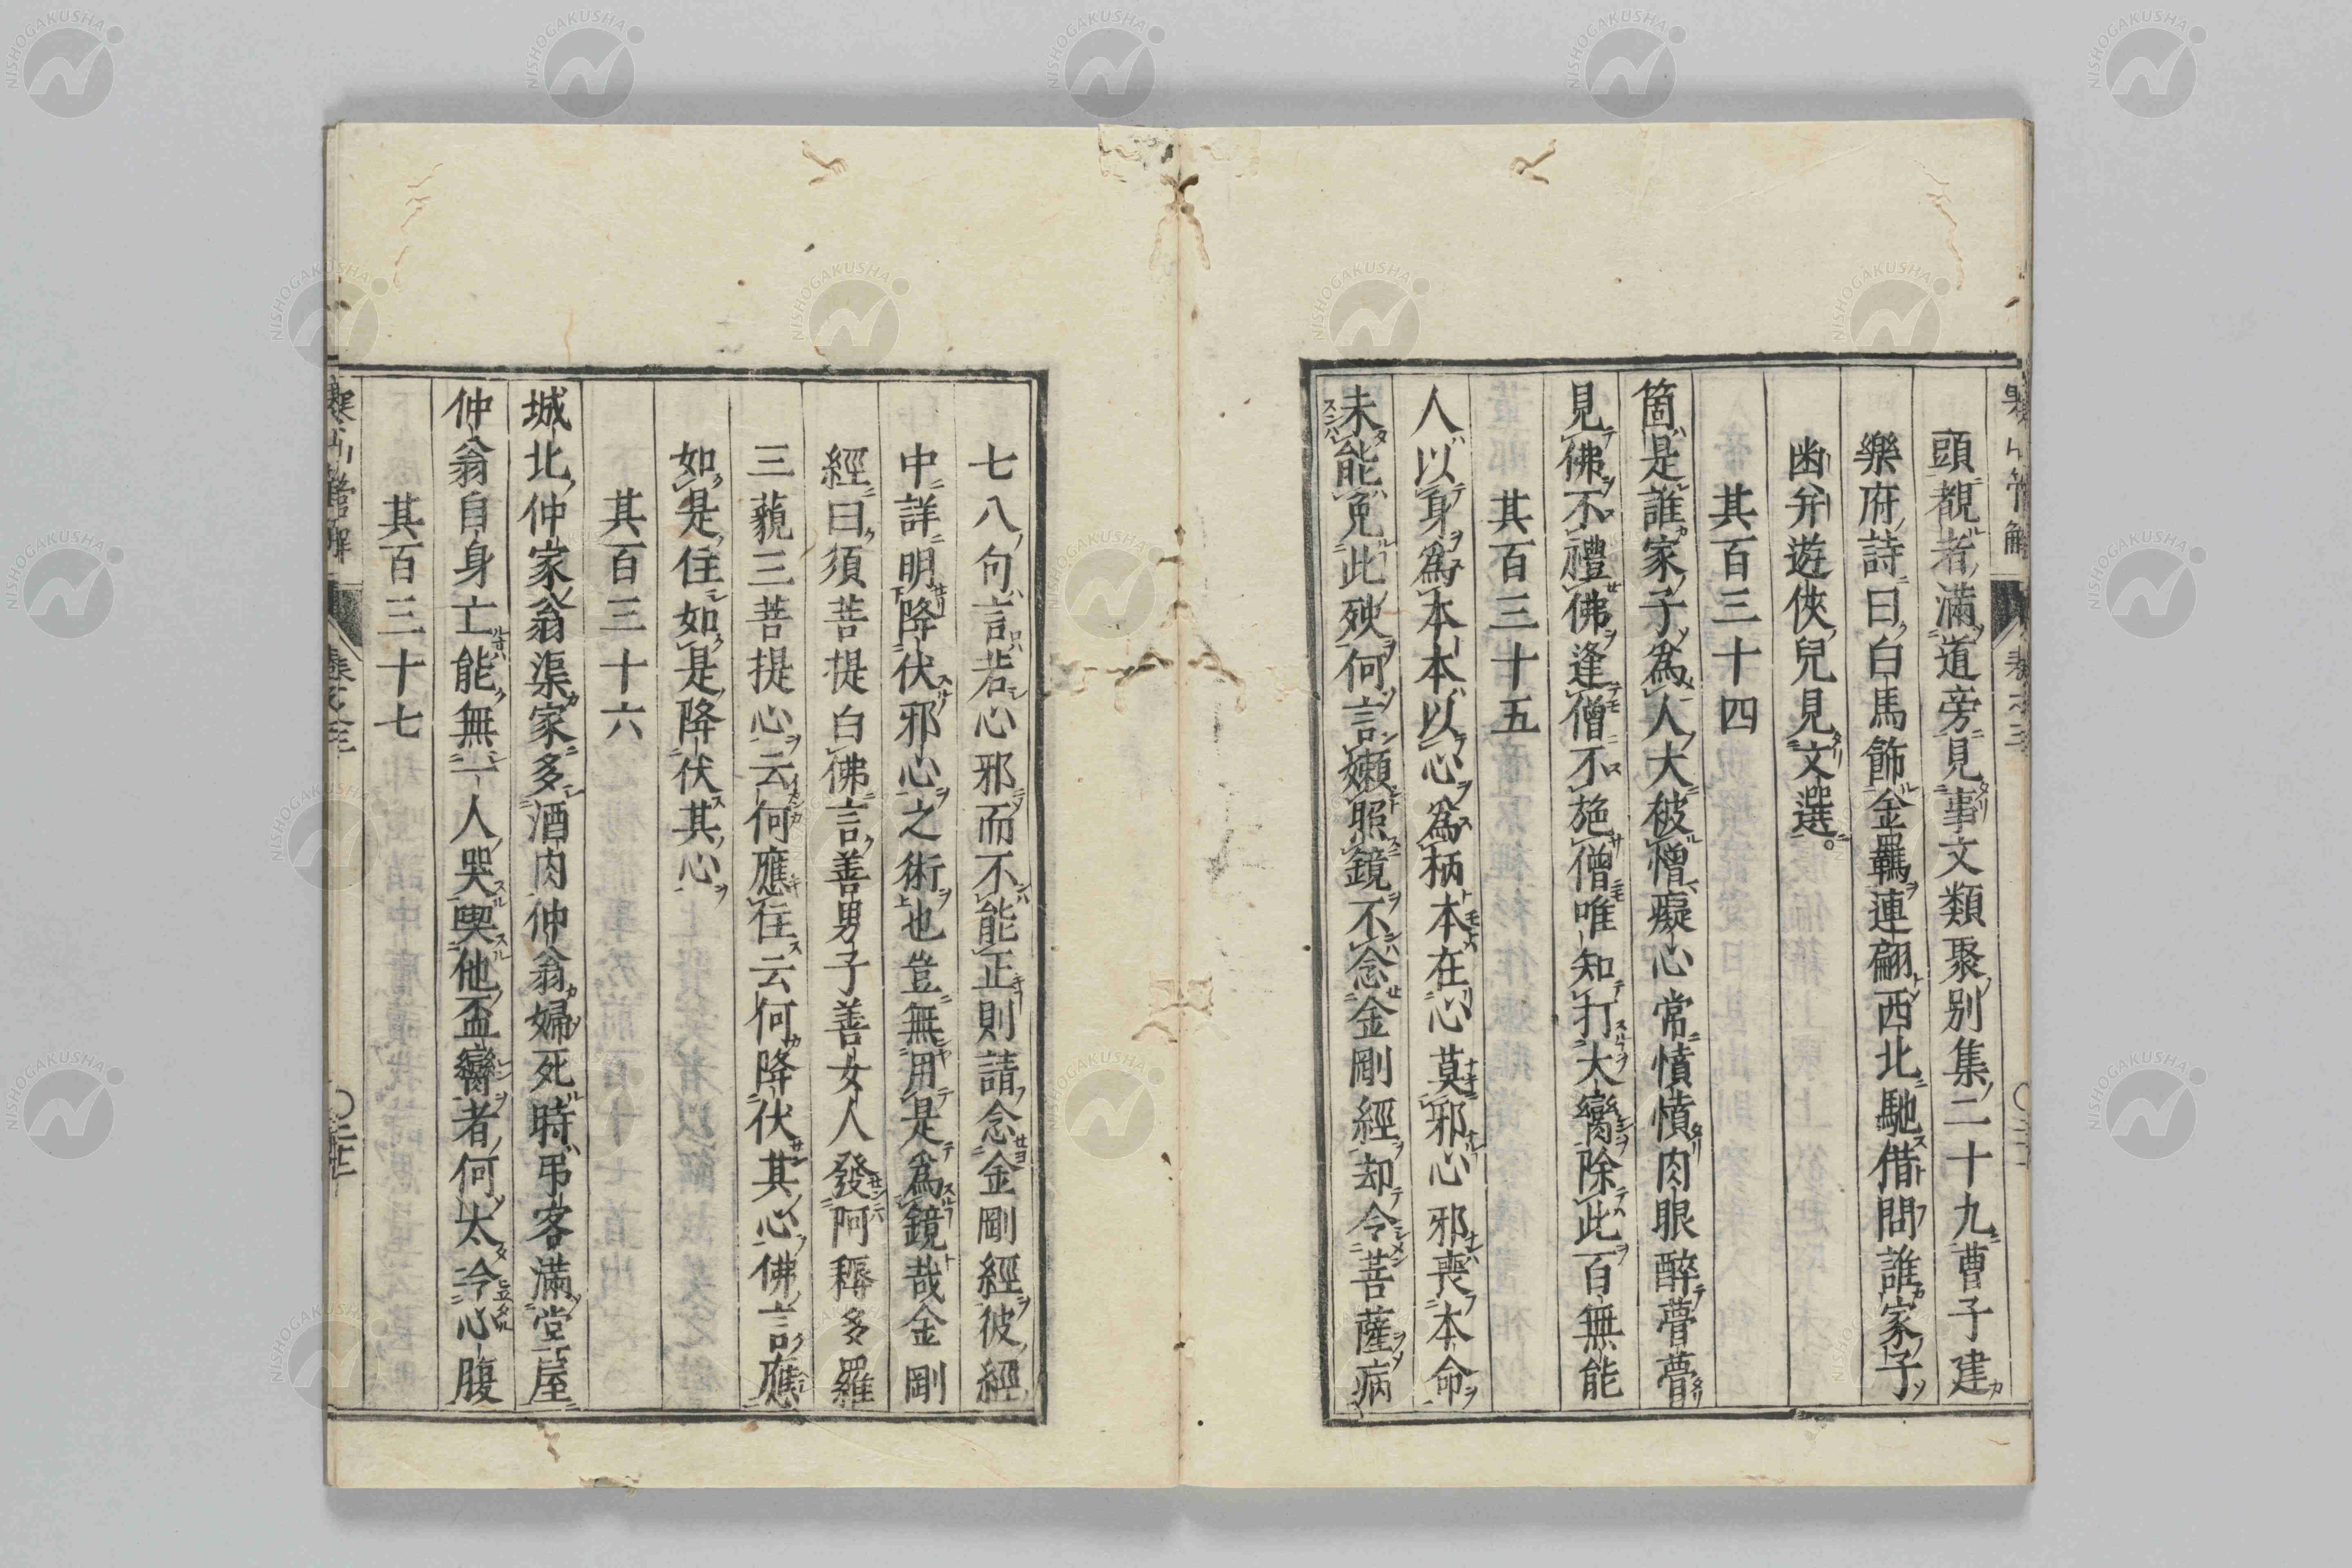 頭覩者滿道旁見事文類聚別集二十九曹子建
樂府詩曰白馬飾金羈連翩西北馳借問誰家子
幽并遊俠兒見文選。
其百三十四
箇是誰家子爲人大被憎癡心常憤憤肉眼醉瞢瞢
見佛不禮佛逢僧不施僧唯知打大臠除此百無能
其百三十五
人以身爲本本以心爲柄本在心莫邪心邪喪本命
未能免此殃何言嬾照鏡不念金剛經却令菩薩病
七八句言若心邪而不能正則請念金剛經彼經
中詳明降伏邪心之術也豈無用是爲鏡哉金剛
經曰須菩提白佛言善男子善女人發阿耨多羅
三藐三菩提心云何應住云何降伏其心佛言應
如是住如是降伏其心
其百三十六
城北仲家翁渠家多酒肉仲翁婦死時弔客滿堂屋
仲翁自身亡能無一人哭喫他盃臠者何太冷心腹
其百三十七
寒山詩管解 卷之三